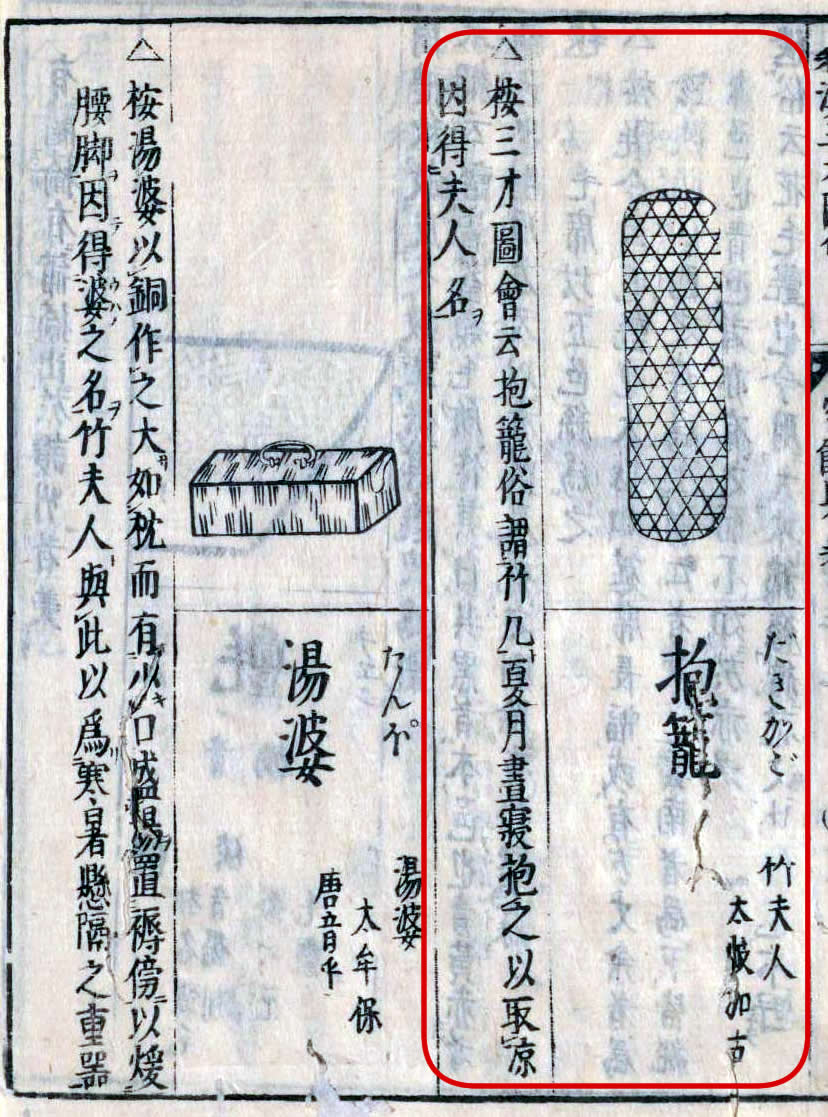 だきかご
抱籠
竹夫人
太岐加古
△按三才圖會云抱籠俗謂竹几夏月晝寢抱之以取凉
因得夫人名ヲ
たんぽ
湯婆
湯婆
太牟保
唐音
△按湯婆以銅作之大サ如枕而有少キ口盛湯置褥傍以煖
腰脚ヲ因テ得婆ウハノ之名ヲ竹夫人與此以爲寒暑懸隔之重器